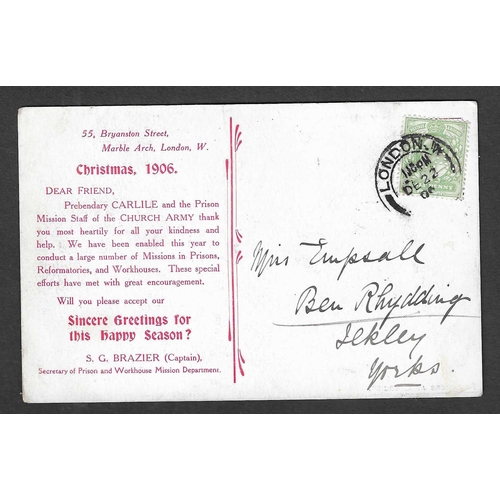 55, Bryanston Street,
Marble Arch, London, W.
Christmas, 1906.
DEAR FRIEND,
Prebendary CARLILE and the Prison
Mission Staff of the CHURCH ARMY thank
you most heartily for all your kindness and
help. We have been enabled this year to
conduct a large number of Missions in Prisons,
Reformatories, and Workhouses. These special
efforts have met with great encouragement.
Will you please accept our
Sincere Greetings for
this Happy Season?
S. G. BRAZIER (Captain),
Secretary of Prison and Workhouse Mission Department.
LONDON. W
DE 22
06
Miss Empsall
Ben Rhydding
Ilkley
Yorks.